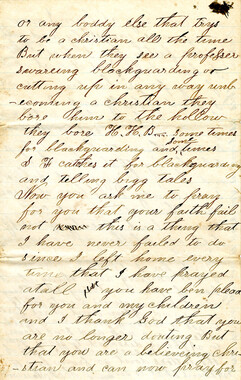 or any boddy else that trys
to be a christian all the time
But when they see a professer
swareing blackguarding or
cutting up in any way unb-
-ecoming a christian they
bore him to the hollow
they bore H. H. B. some times
for blackguarding and some times
S H catches it for blackguarding
and telling bigg tales
Now you ask me to pray
for you that your faith fail
not this is a thing that
I have never failed to do
since I left home every
time that I have prayed
atall you have bin plead
for you and my children
and I thank God that you
are no longer douting. But
that you are a believeing chri-
-stian and can now pray for